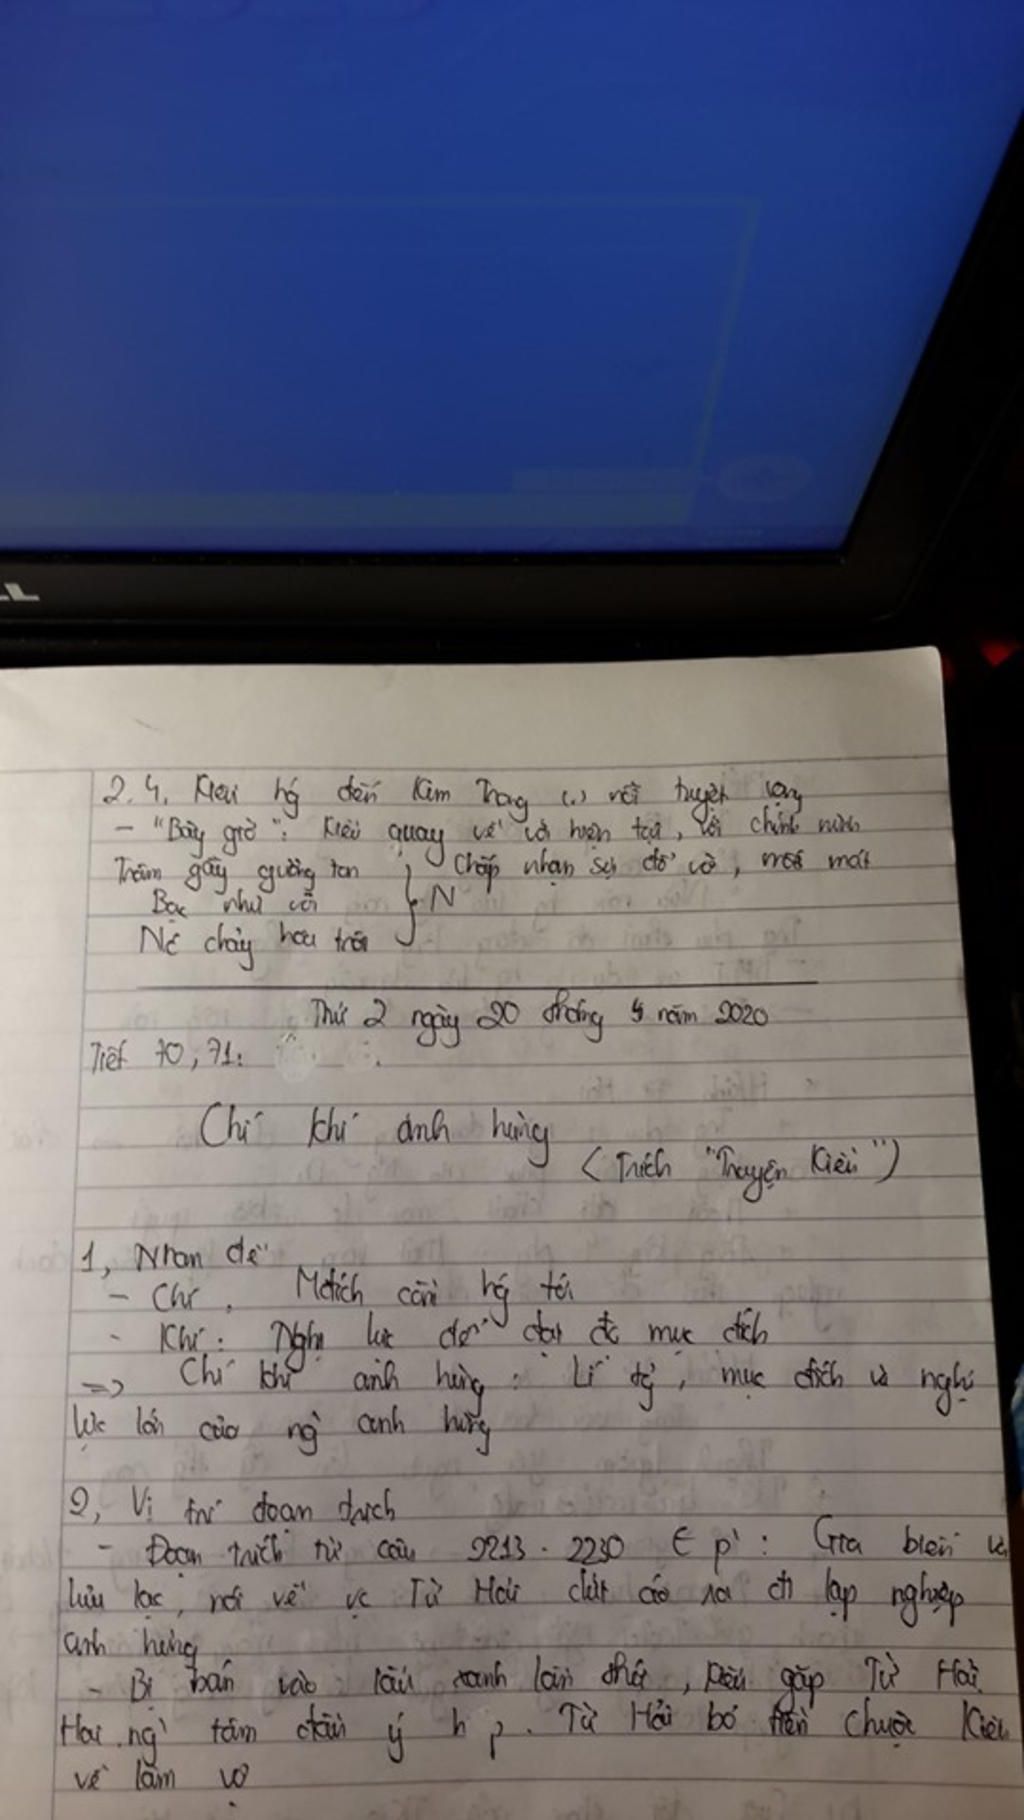 LL
2.4. Kiều hg đến Kim Trọng (.) nỗi tuyệt vọng
- "Bây giờ": Kiều quay về với hiện tại, với chính mình
Trâm gãy gương tan } Chấp nhận sự đổ vỡ, mất mát
Bạc như vôi } N
Nc chảy hoa trôi
Thứ 2 ngày 20 tháng 4 năm 2020
Tiết 70, 71:
Chí khí anh hùng
(Trích "Truyện Kiều")
1, Nhan đề
- Chí: Mđích cần hg tới
- Khí: Nghị lực để đạt đc mục đích
=> Chí khí anh hùng: Lí tg, mục đích và nghị
lực lớn của ng` anh hùng
2, Vị trí đoạn trích
- Đoạn trích từ câu 2213 - 2230 ∈ p`: Gia biến và
lưu lạc, nói về vc Từ Hải dứt áo ra đi lập nghiệp
anh hùng
- Bị bán vào lầu xanh lần thứ, Kiều gặp Từ Hải.
Hai ng` tâm đầu ý hp. Từ Hải bỏ tiền chuộc Kiều
về làm vợ